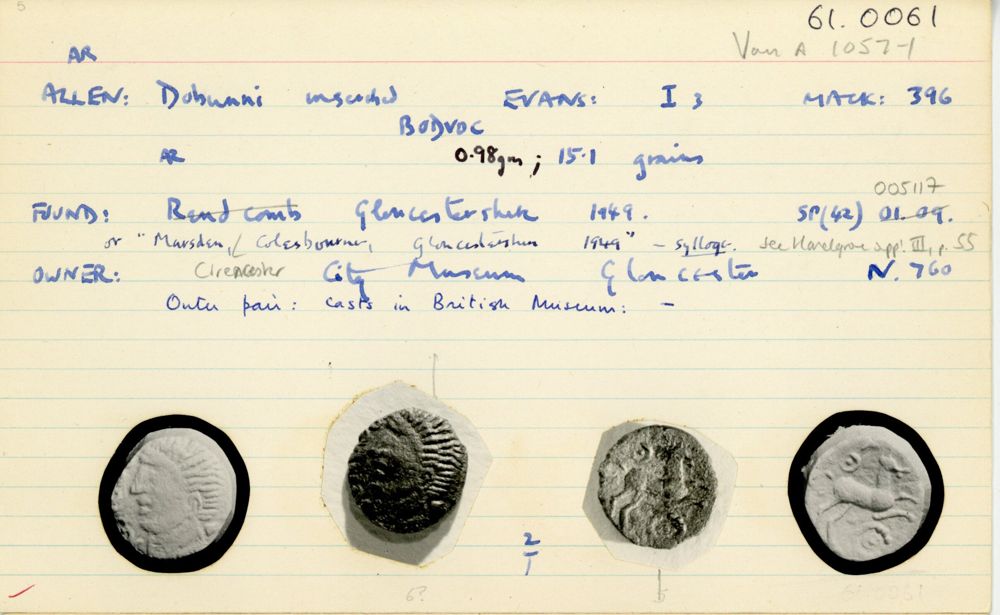 5
61.0061
Van A 1057-1
AR
ALLEN: Dobunni inscribed EVANS: I 3 MACK: 396
BODVOC
AR 0.98gm; 15.1 grains
005117
FOUND: Rendcomb Gloucestershire 1949. SP(42) 01.09.
or "Marsden, Colesbourne, Gloucestershire 1949" - sylloge. see Haselgrove app. III, p. 55
OWNER: Cirencester City Museum Gloucester N. 760
Outer pair: casts in British Museum: -
2/1
6?
5
61.0061